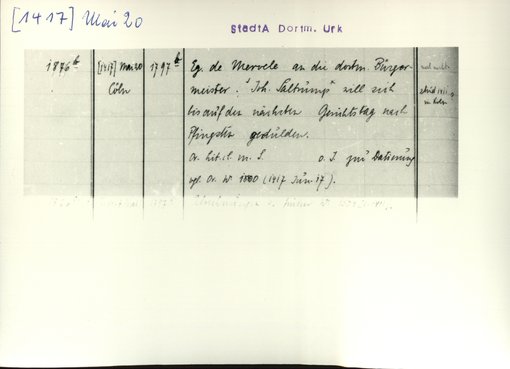 [1417] Mai 20
StadtA Dortm. Urk
1876 b
[1417] Mai 20
Cöln
1797 b
Eg. de Mervele an die dortm. Bürger-
meister: "Joh. Saltrump" will sich
bis auf den nächsten Gerichtstag nach
Pfingsten gedulden.
Or. lit. cl. m. S. o. J. zur Datierung
vgl. Or. No 1880 (1417 Jun 17).